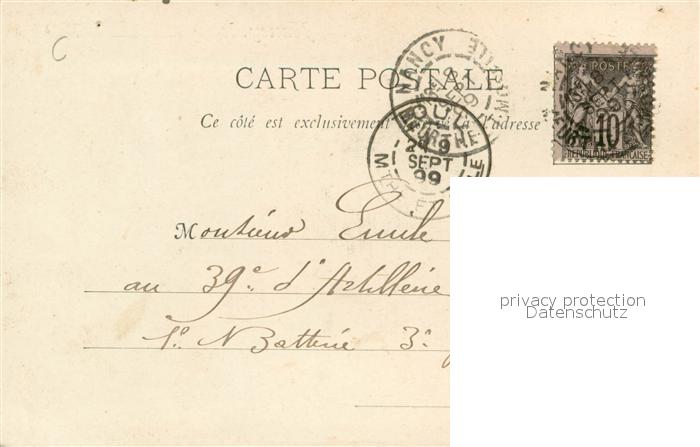 C
CARTE POSTALE
Ce côté est exclusivement réservé à l'adresse
NANCY
TOUL
29
SEPT
99
POSTE
10
RÉPUBLIQUE FRANÇAISE
Monsieur Emile
au 39e d'Artillerie
Batterie 3e
privacy protection
Datenschutz